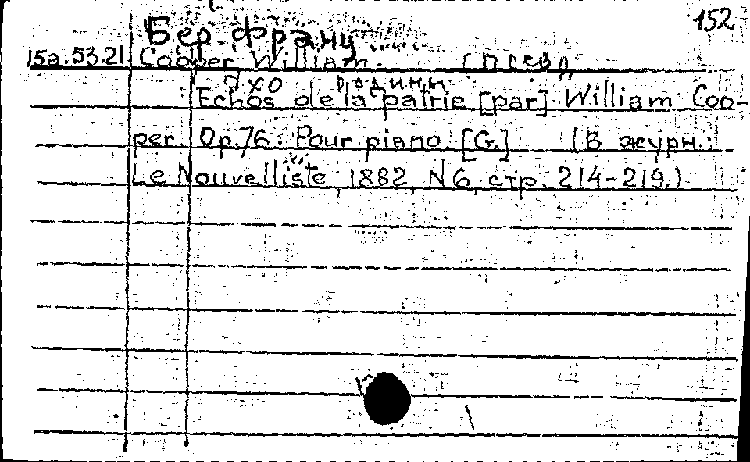 152
Бер Франц
15а.53.21 Cooper William. (псевд
Эхо родины
Echos de la patrie [par] William Coo-
per. Op.76. Pour piano. [G.] (В журн.:
Le Nouvelliste, 1882, N6, стр. 214-219.)